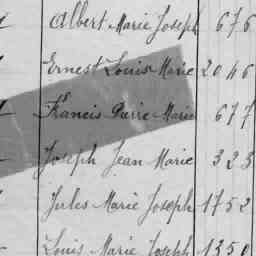 Albert Marie Joseph 676
Ernest Louis Marie 2046
Francis Pierre Marie 677
Joseph Jean Marie 323
Jules Marie Joseph 1752
Louis Marie Joseph 1350